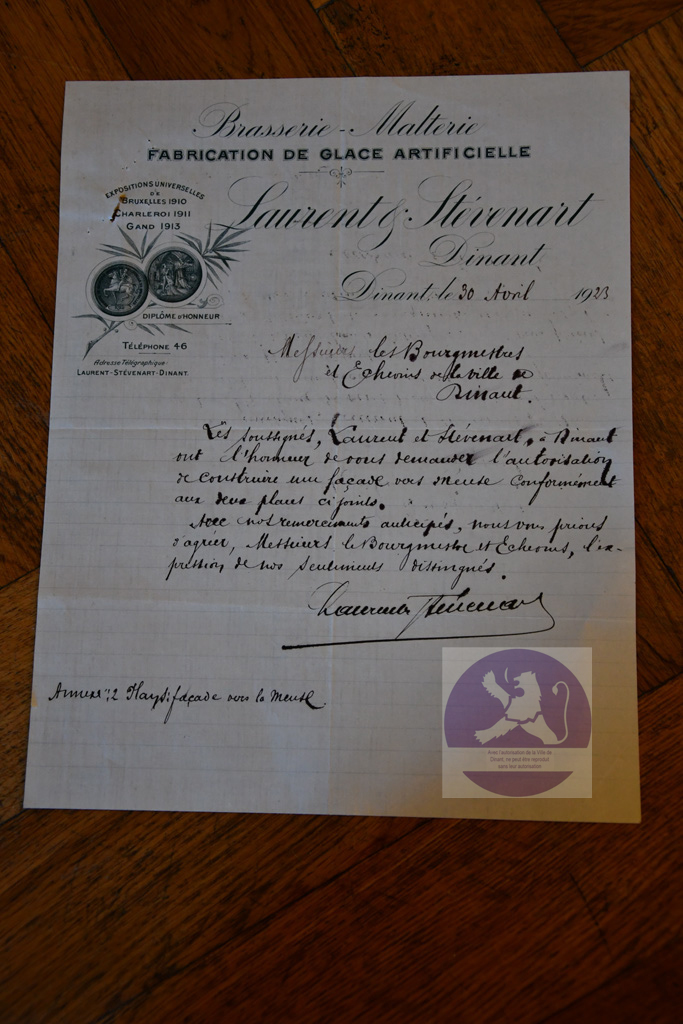 Brasserie - Malterie
FABRICATION DE GLACE ARTIFICIELLE
EXPOSITIONS UNIVERSELLES
DE
BRUXELLES 1910
CHARLEROI 1911
GAND 1913
DIPLÔME D'HONNEUR
TÉLÉPHONE 46
Adresse Télégraphique:
LAURENT-STÉVENART-DINANT.
Laurent & Stévenart
Dinant,
Dinant, le 30 Avril 1923
Messieurs les Bourgmestres
et Echevins de la ville de
Dinant.
Les soussignés, Laurent et Stévenart, à Dinant
ont l'honneur de vous demander l'autorisation
de construire une façade vers Meuse conformément
aux deux plans ci joints.
Avec nos remerciments anticipés, nous vous prions
d'agréer, Messieurs le Bourgmestre et Echevins, l'ex-
pression de nos sentiments distingués.
Laurent Stévenart
Annexe: 2 façade vers la Meuse.
Avec l'autorisation de la Ville de
Dinant, ne peut être reproduit
sans leur autorisation